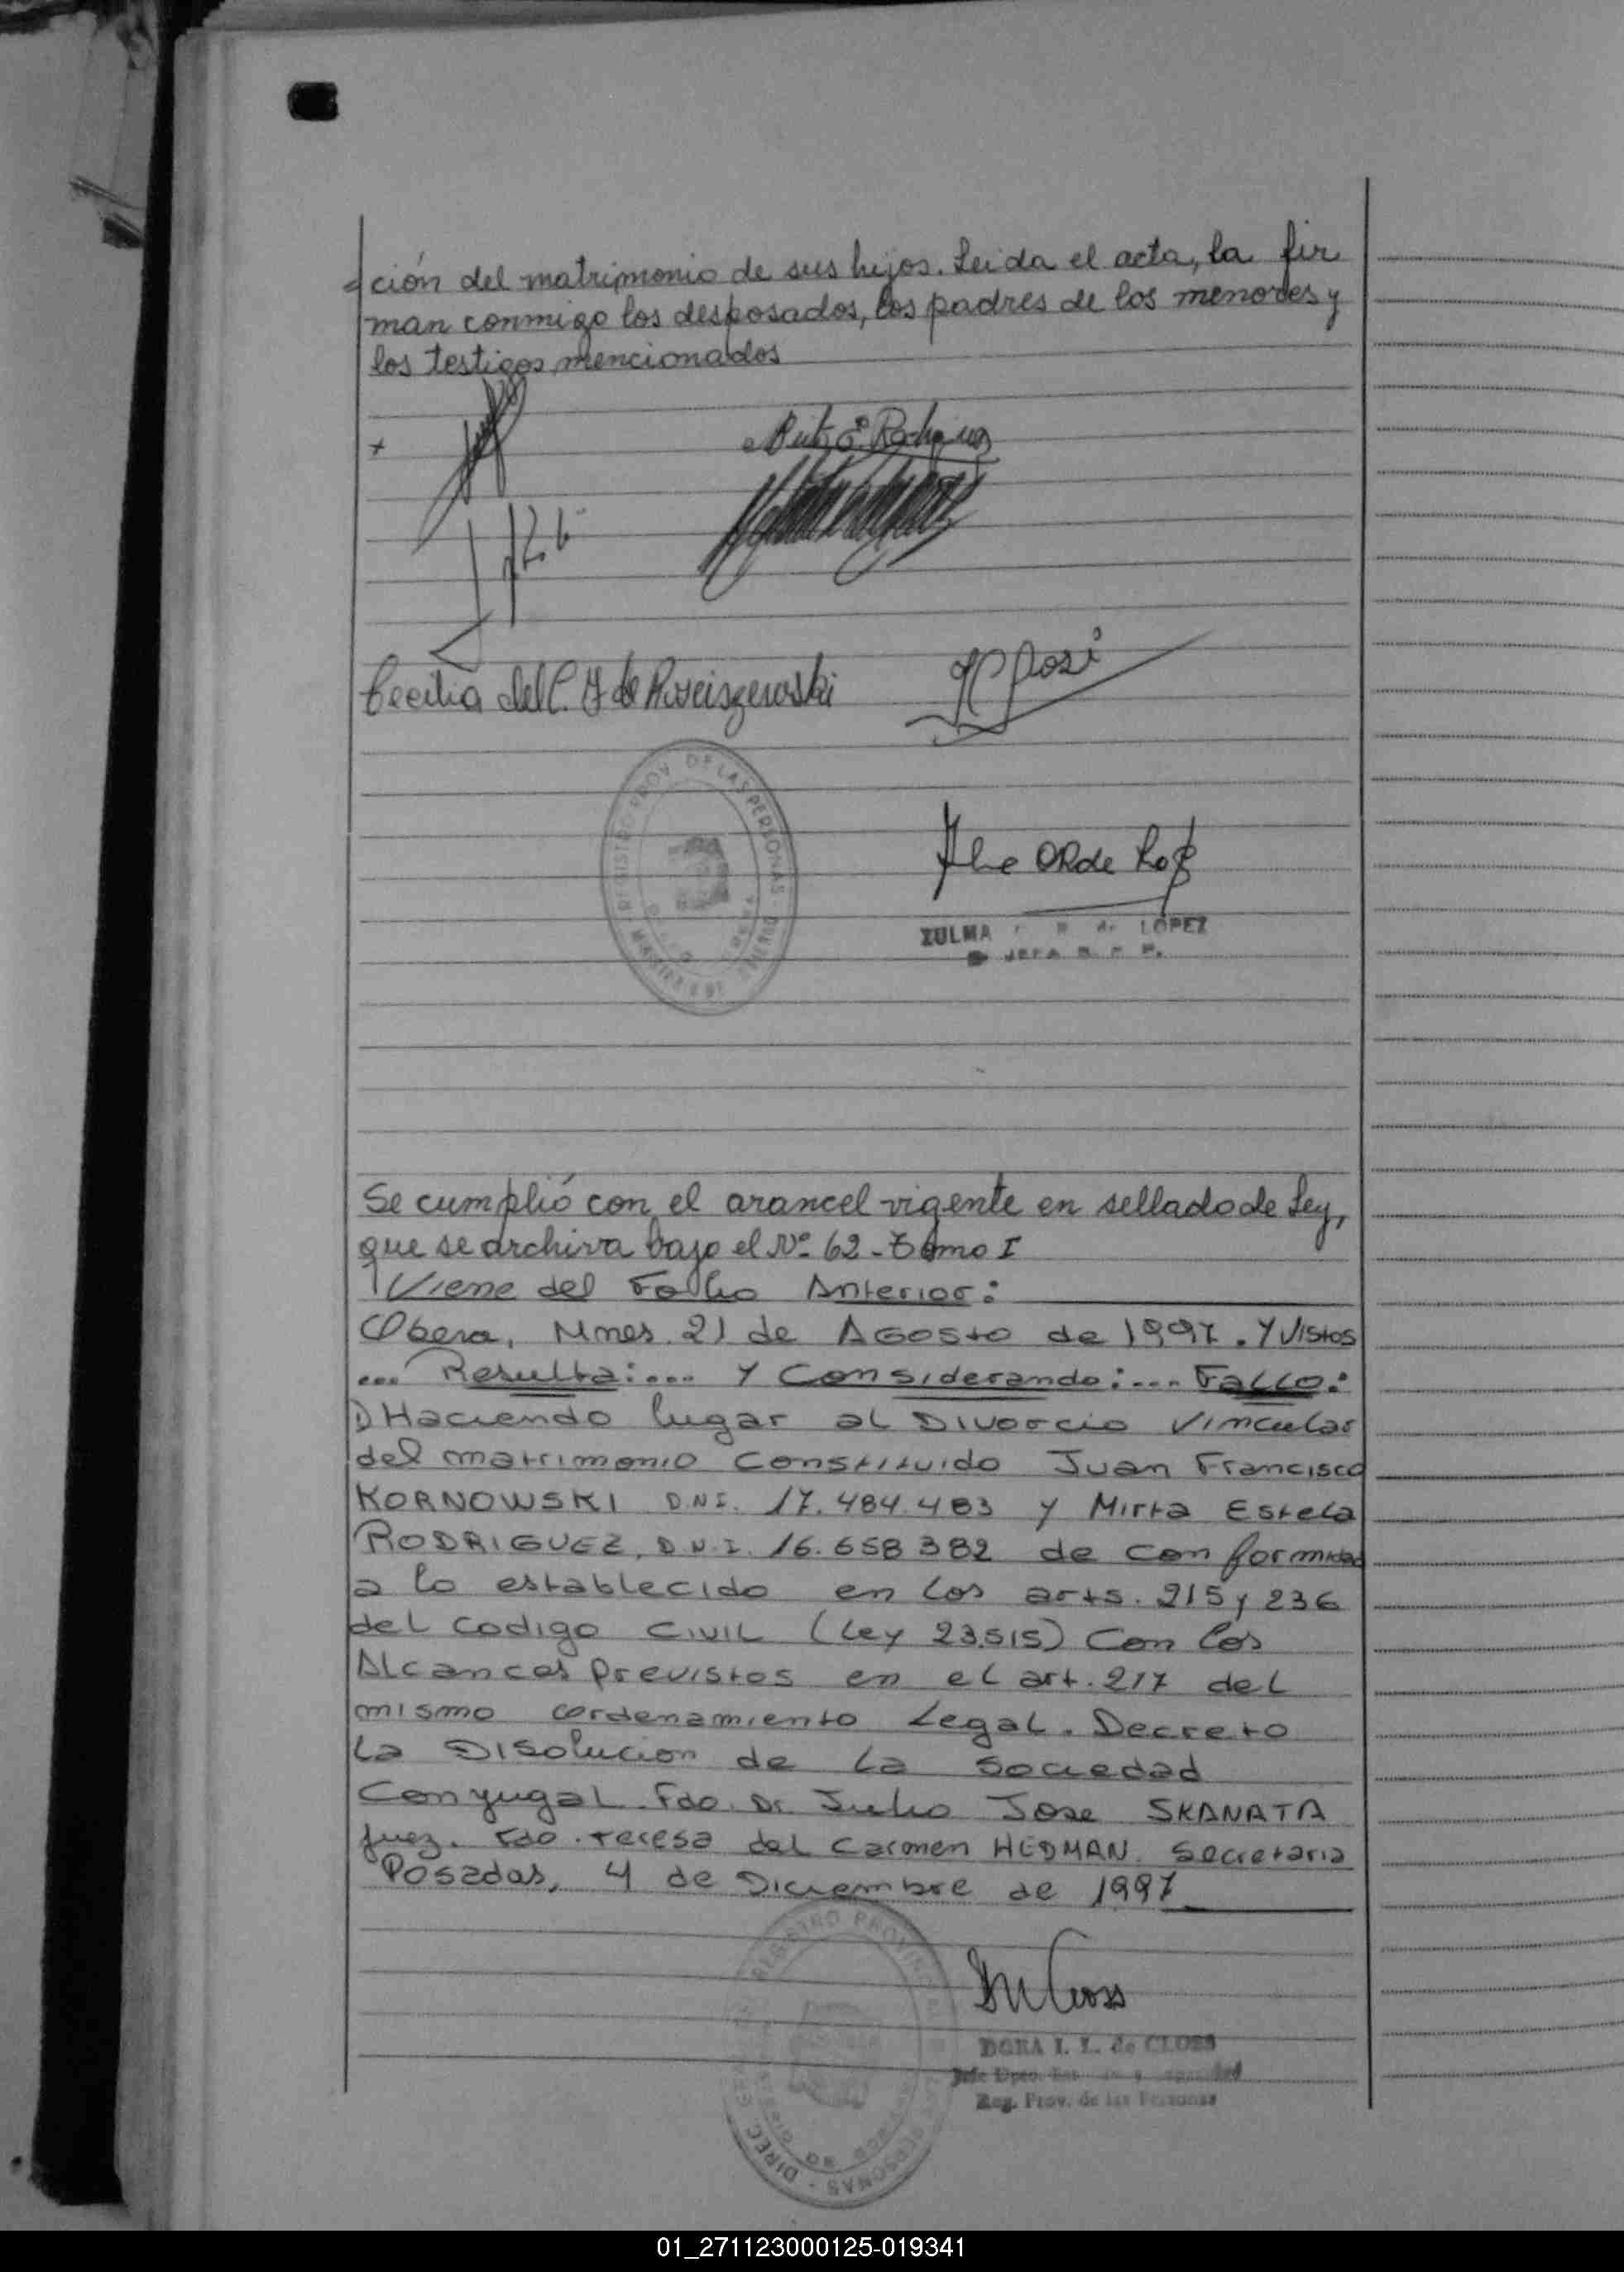 =ción del matrimonio de sus hijos. Leida el acta, la fir
man conmigo los desposados, los padres de los menores y
los testigos mencionados
+
Cecilia del C. J de
REGISTRO PROV. DE LAS PERSONAS
MISIONES
ZULMA de LOPEZ
JEFA
Se cumplió con el arancel vigente en sellado de Ley,
que se archiva bajo el Nº 62 - Tomo I
Viene del Folio Anterior:
Obera, Mnes. 21 de Agosto de 1997. Y Vistos
... Resulta:... Y Considerando:... Fallo:
1) Haciendo lugar al Divorcio Vincular
del matrimonio Constituido Juan Francisco
KORNOWSKI D.N.I. 17.484.483 y Mirta Estela
RODRIGUEZ, D.N.I. 16.658.382 de conformidad
a lo establecido en los arts. 215 y 236
del codigo civil (Ley 23.515) Con los
Alcances previstos en el art. 217 del
mismo ordenamiento Legal. Decreto
La Disolucion de La Sociedad
Conyugal. Fdo. Dr. Julio Jose SKANATA
Juez. Fdo. Teresa del Carmen HEDMAN. Secretaria
Posadas, 4 de Diciembre de 1997
REGISTRO PROVINCIAL
PERSONAS - DIREC
DORA I. L. de CLOSS
Jefe Dpto.
Reg. Prov. de las Personas
01_271123000125-019341